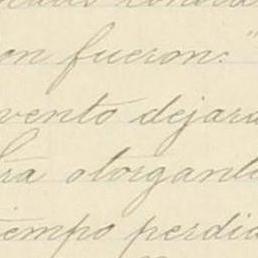 on fueron: "
vento dejara
ra otorgante
tiempo perdid